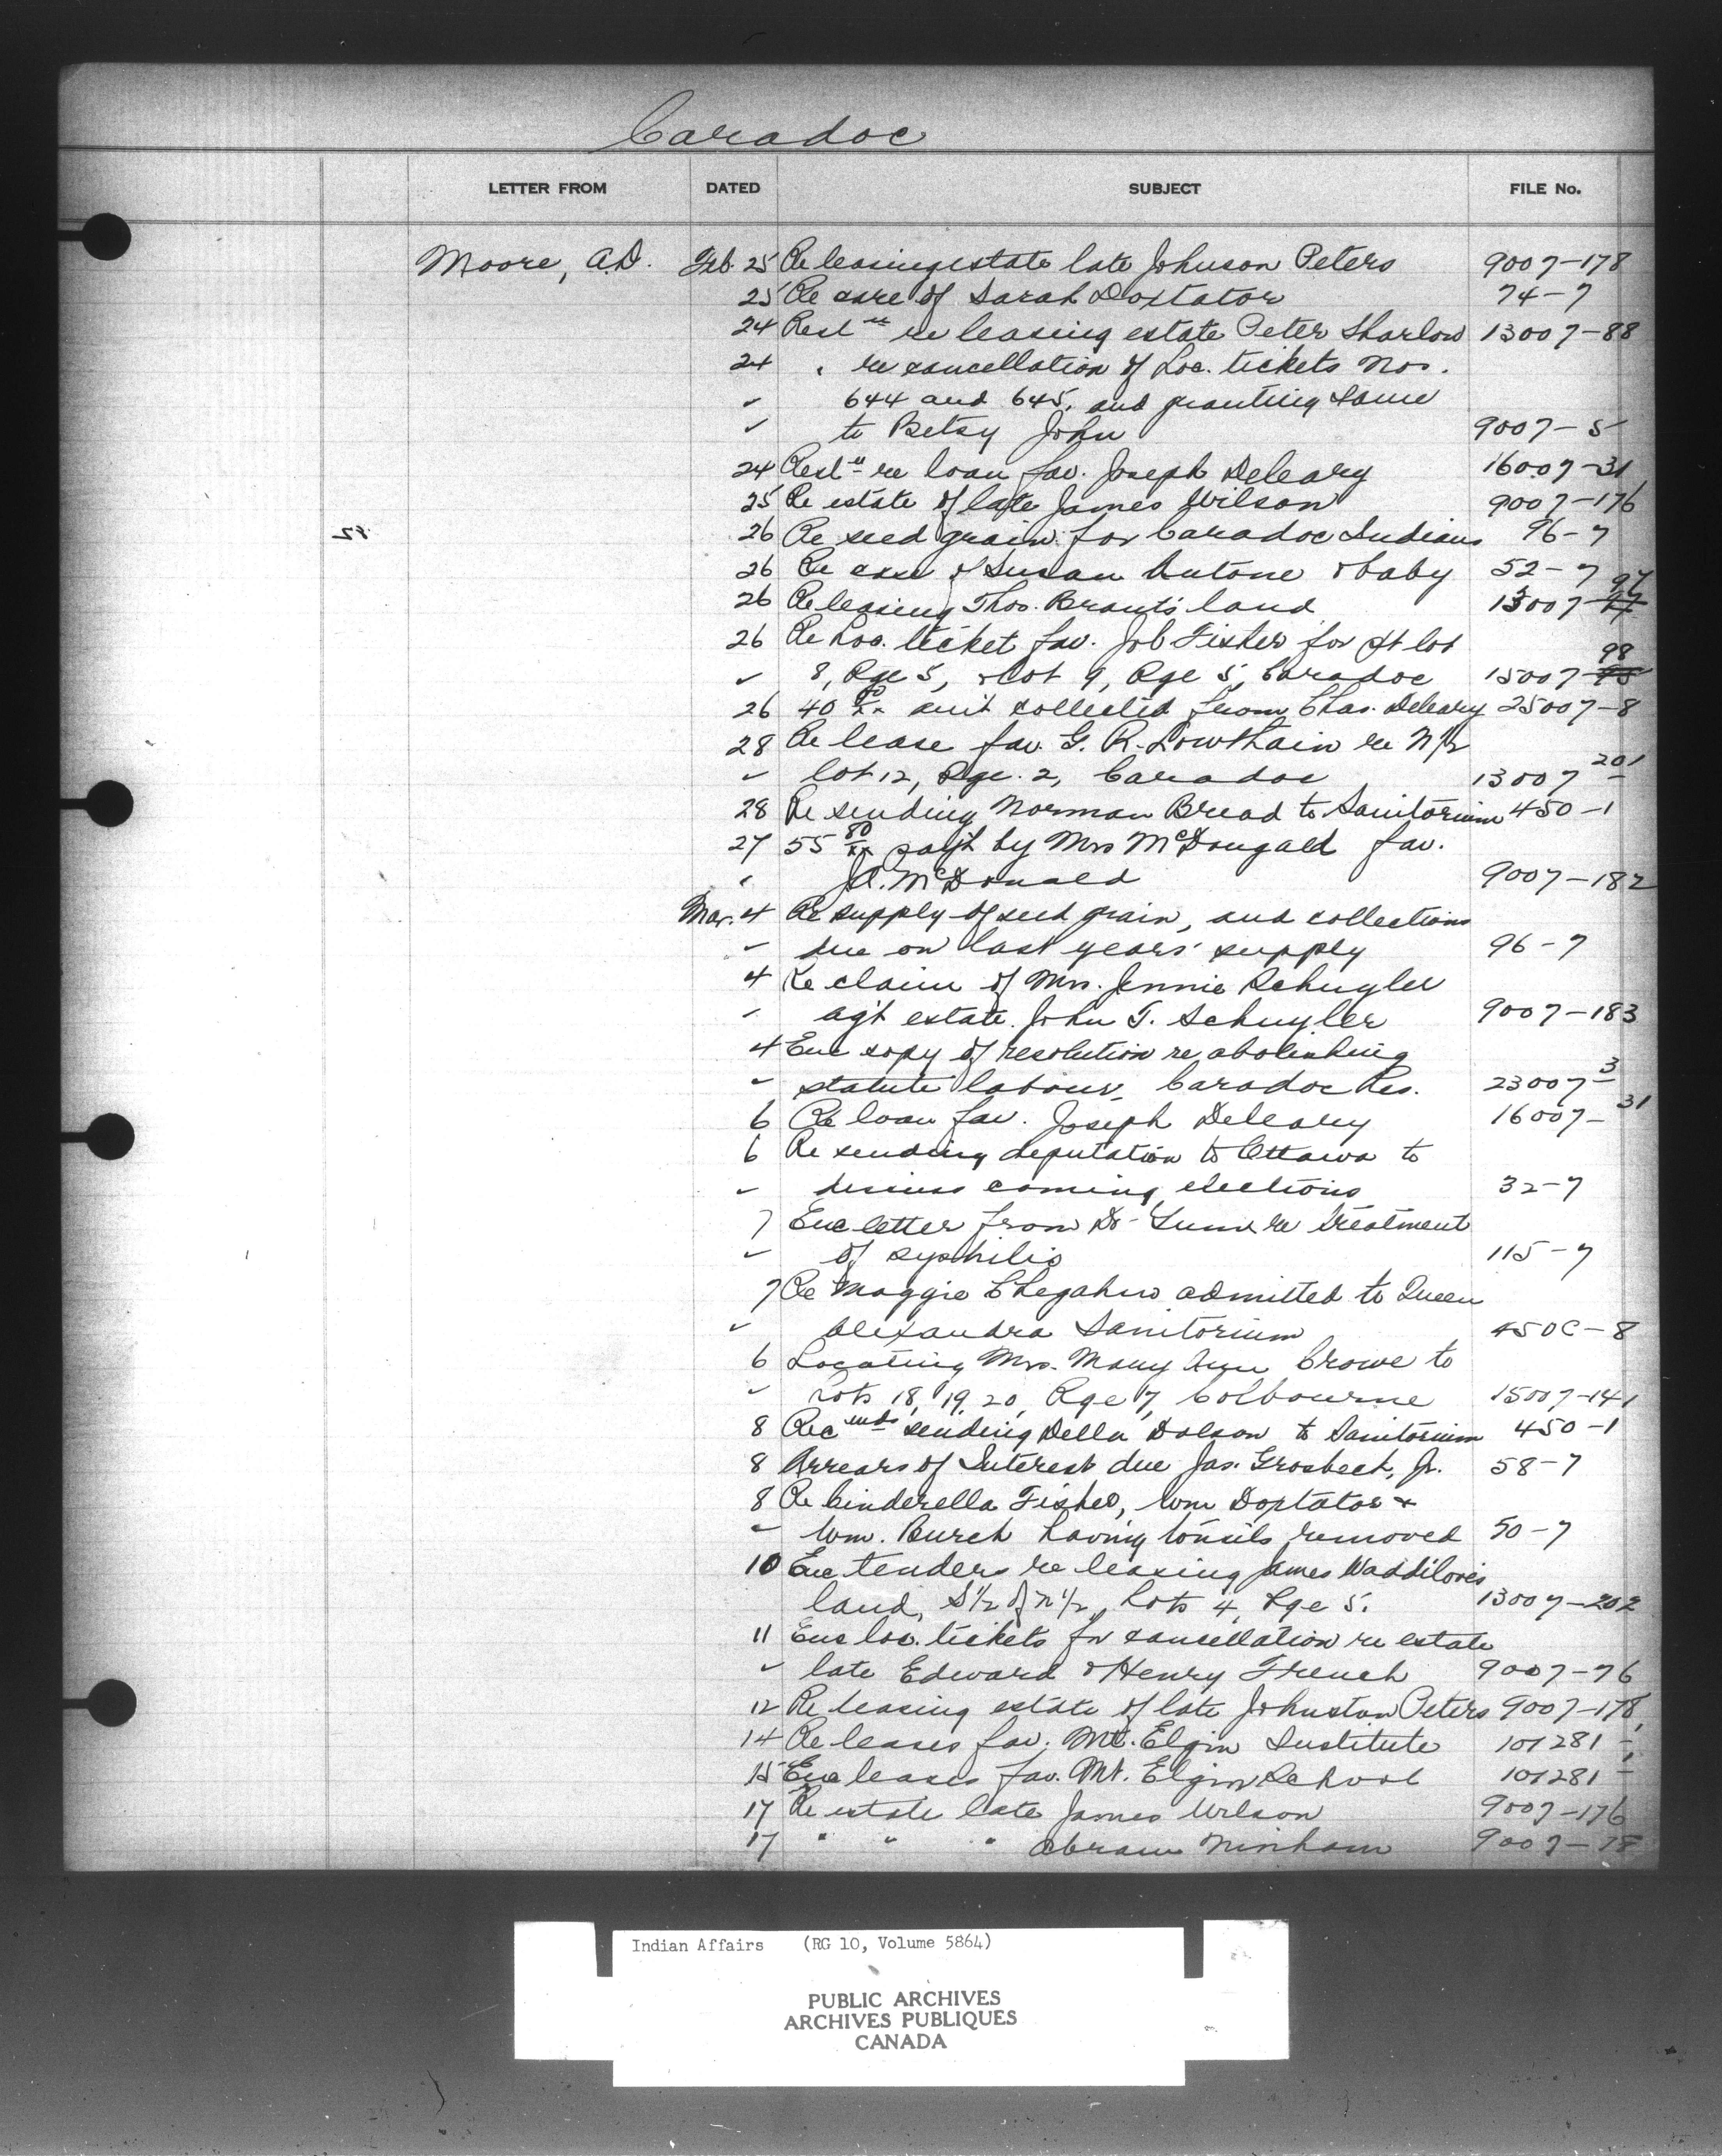 Caradoc
LETTER FROM DATED SUBJECT FILE No.
Moore, A.D. Feb. 25 Re leasing estate late Johnson Peters 9007-178
25 Re care of Sarah Doxtator 74-7
24 Resl re leasing estate Peter Sharlow 13007-88
24 " re cancellation of Loc. tickets Nos.
✓ 644 and 645, and granting same
✓ to Betsy John 9007-5
24 Resln re loan fav. Joseph Deleary 16007-31
25 Re estate of late James Wilson 9007-176
26 Re seed grain for Caradoc Indians 96-7
26 Re case of Susan Antone & baby 52-7
26 Re leasing Thos. Brant's land 13007-97
26 Re Loc. ticket fav. Job Fisher for pt lot
✓ 8, Rge 5, & lot 9, Rge 5, Caradoc 15007-98
26 40 80/xx collected from Chas. Deleary 25007-8
28 Re lease fav. G. R. Lowthain re N½
✓ lot 12, Rge. 2, Caradoc 13007-201
28 Re sending Norman Bread to Sanitorium 450-1
27 55 80/xx pay't by Mrs McDougald fav.
" J.A. McDonald 9007-182
Mar. 4 Re supply of seed grain, and collections
✓ due on last years' supply 96-7
4 Re claim of Mrs. Jennie Schuyler
✓ ag't estate John T. Schuyler 9007-183
4 Enc copy of resolution re abolishing
✓ statute labour, Caradoc Res. 23007-3
6 Re loan fav. Joseph Deleary 16007-31
6 Re sending deputation to Ottawa to
✓ discuss coming elections 32-7
7 Enc letter from Dr. re treatment
✓ of syphilis 115-7
7 Re Maggie admitted to Queen
✓ Alexandra Sanitorium 450C-8
6 Locating Mrs. Mary Ann Crowe to
✓ Lots 18, 19, 20, Rge 7, Colbourne 15007-141
8 Recmds sending Della Dolson to Sanitorium 450-1
8 Arrears of Interest due Jas. Grosbeck, Jr. 58-7
8 Re Cinderella Fisher, Wm Doxtator &
✓ Wm. Burch having tonsils removed 50-7
10 Enc tenders re leasing James Waddilove's
land, S½ of N½, Lots 4, Rge 5. 13007-202
11 Enc loc. tickets for cancellation re estate
✓ late Edward & Henry French 9007-76
12 Re leasing estate of late Johnston Peters 9007-178
14 Re leases fav. Mt. Elgin Institute 101281-
15 Enc leases fav. Mt. Elgin School 101281-1
17 Re estate late James Wilson 9007-176
17 " " " Abram Ninham 9007-78
Indian Affairs (RG 10, Volume 5864)
PUBLIC ARCHIVES
ARCHIVES PUBLIQUES
CANADA